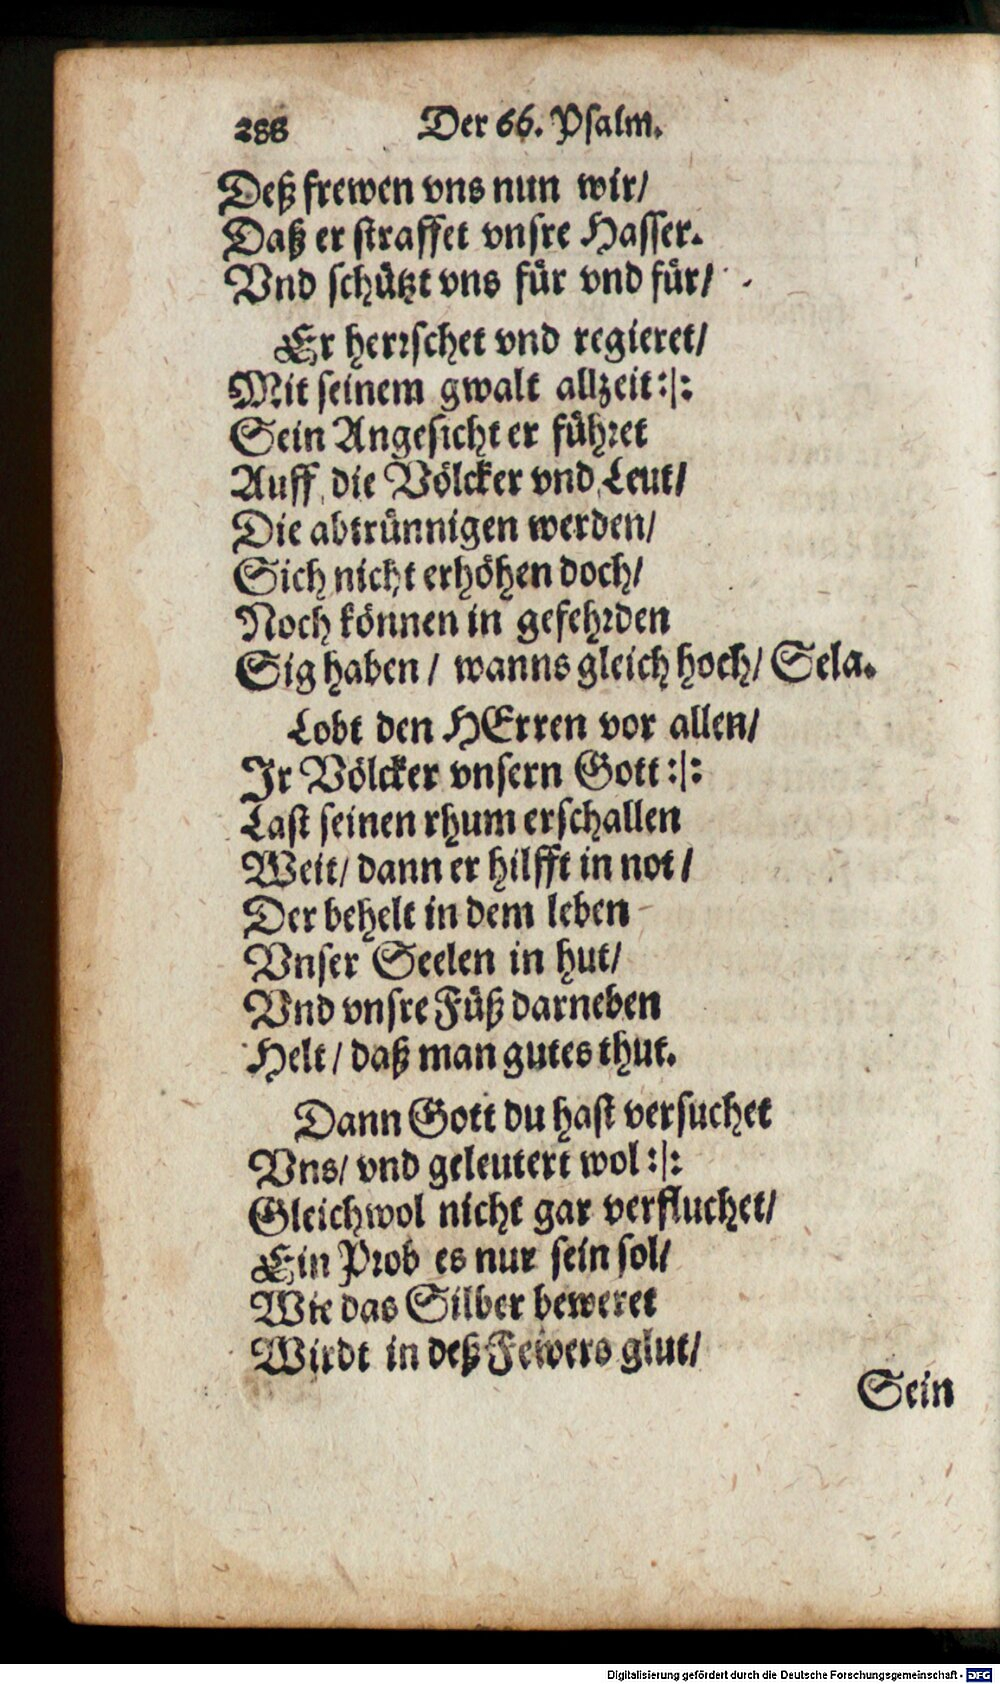 288 Der 66. Psalm.
Deß frewen vns nun wir/
Daß er straffet vnsre Hasser.
Vnd schützt vns für vnd für/
Er herrschet vnd regieret/
Mit seinem gwalt allzeit :|:
Sein Angesicht er führet
Auff die Völcker vnd Leut/
Die abtrünnigen werden/
Sich nicht erhöhen doch/
Noch können in gefehrden
Sig haben / wanns gleich hoch/ Sela.
Lobt den HErren vor allen/
Ir Völcker vnsern Gott :|:
Last seinen rhum erschallen
Weit/ dann er hilfft in not/
Der behelt in dem leben
Vnser Seelen in hut/
Vnd vnsre Füß darneben
Helt / daß man gutes thut.
Dann Gott du hast versuchet
Vns/ vnd geleutert wol :|:
Gleichwol nicht gar verfluchet/
Ein Prob es nur sein sol/
Wie das Silber beweret
Wirdt in deß Fewers glut/
Sein
Digitalisierung gefördert durch die Deutsche Forschungsgemeinschaft - DFG